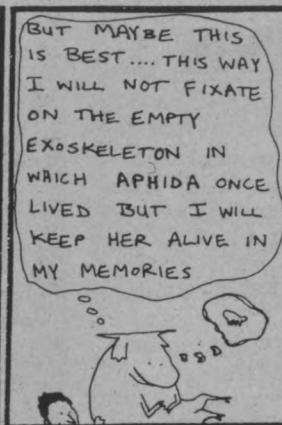 BUT MAYBE THIS
IS BEST.... THIS WAY
I WILL NOT FIXATE
ON THE EMPTY
EXOSKELETON IN
WHICH APHIDA ONCE
LIVED BUT I WILL
KEEP HER ALIVE IN
MY MEMORIES